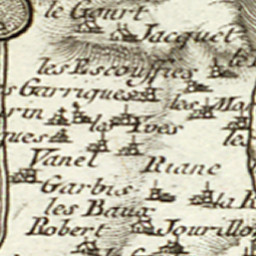 le Gourt
Jacquet
les Escouffies
s Garrigues
les Ma
rin
les Ives
ques
le
Vanel
Rianc
Garbis
la R
les Baux
Robert
Jourillo